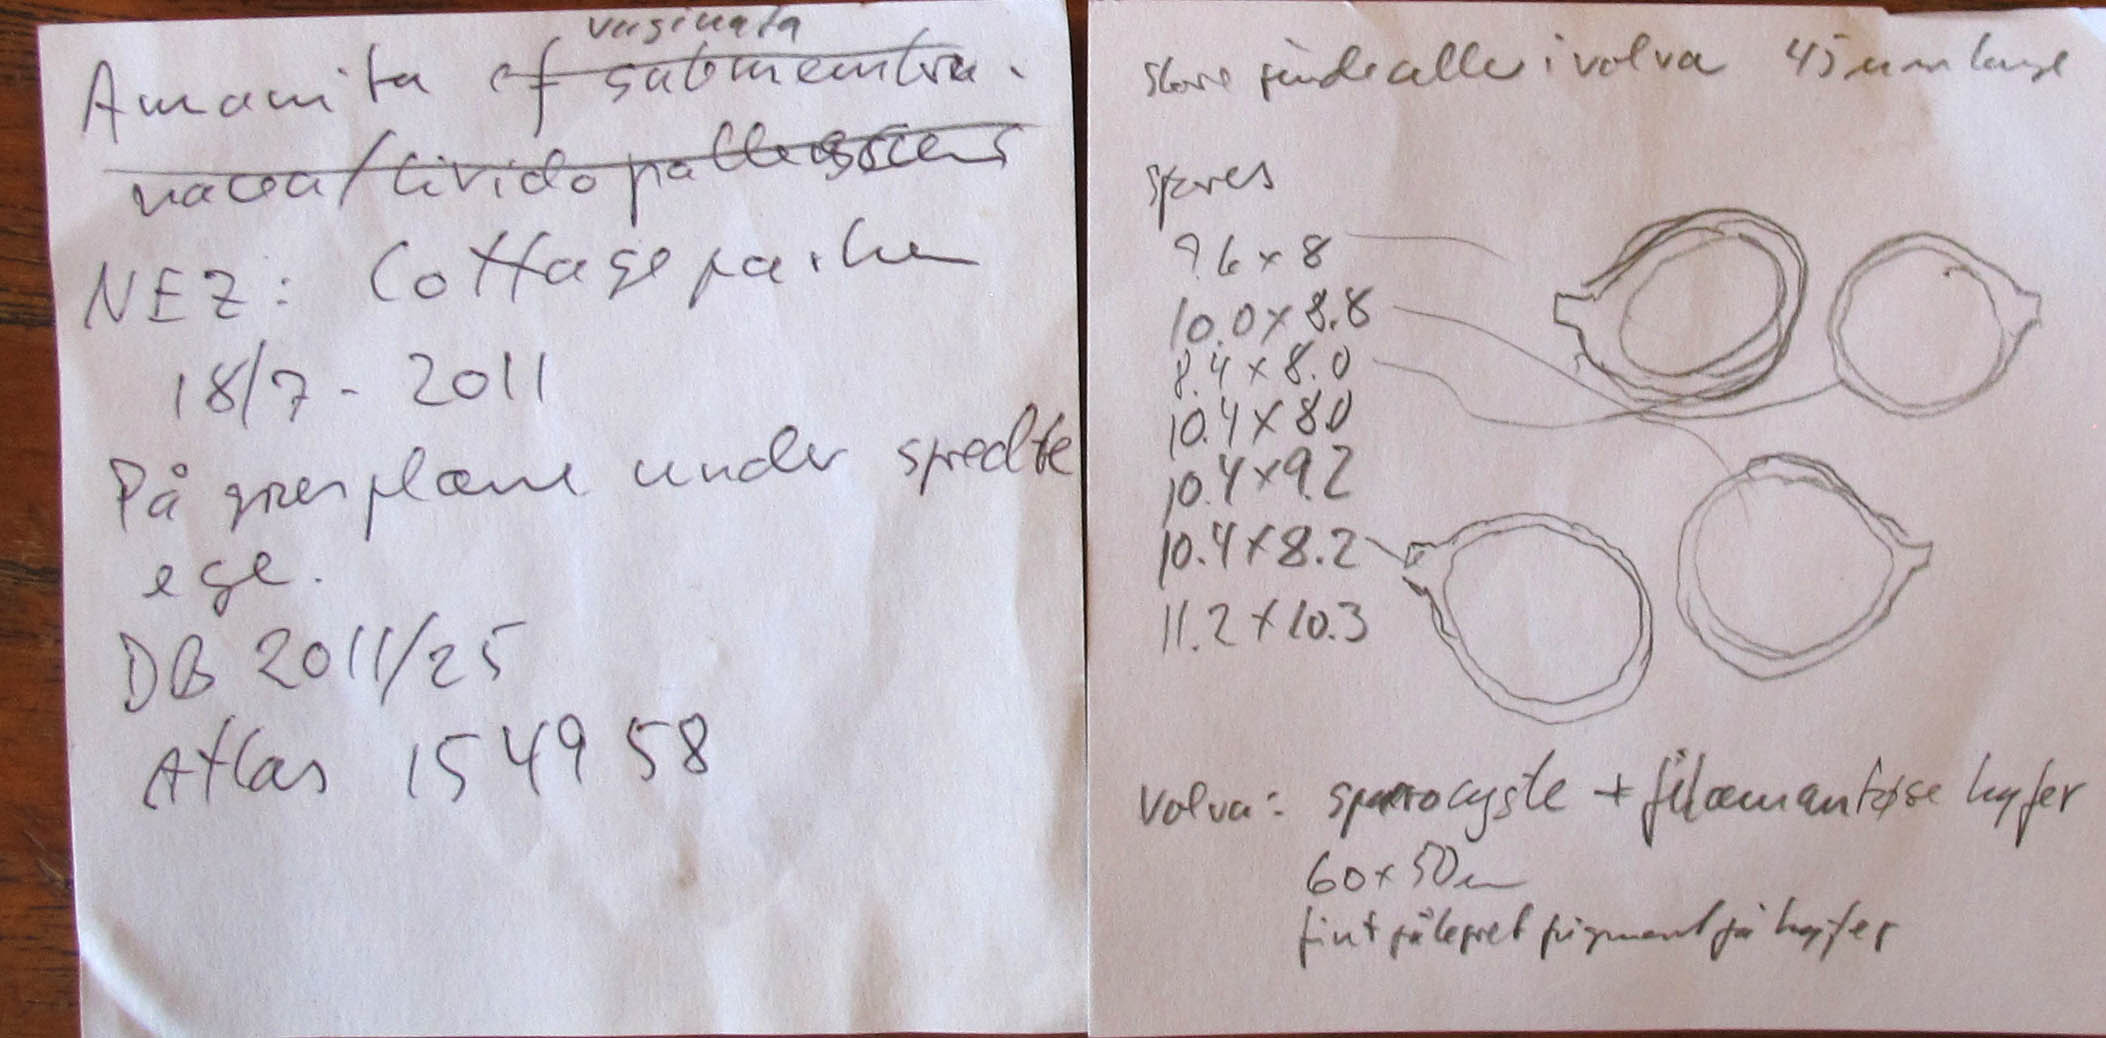 vaginata
Amanita cf submembra-
nacea/lividopallescens
NEZ: Cottageparken
18/7 - 2011
På græsplæne under spredte
ege.
DB 2011/25
Atlas 154958
store rundceller i volva 45 µm lange
spores
9.6 x 8
10.0 x 8.8
8.4 x 8.0
10.4 x 80
10.4 x 9.2
10.4 x 8.2
11.2 x 10.3
Volva: sparocyste + filæmantøse hyfer
60 x 50 µm
fint pålejret pigment på hyfer